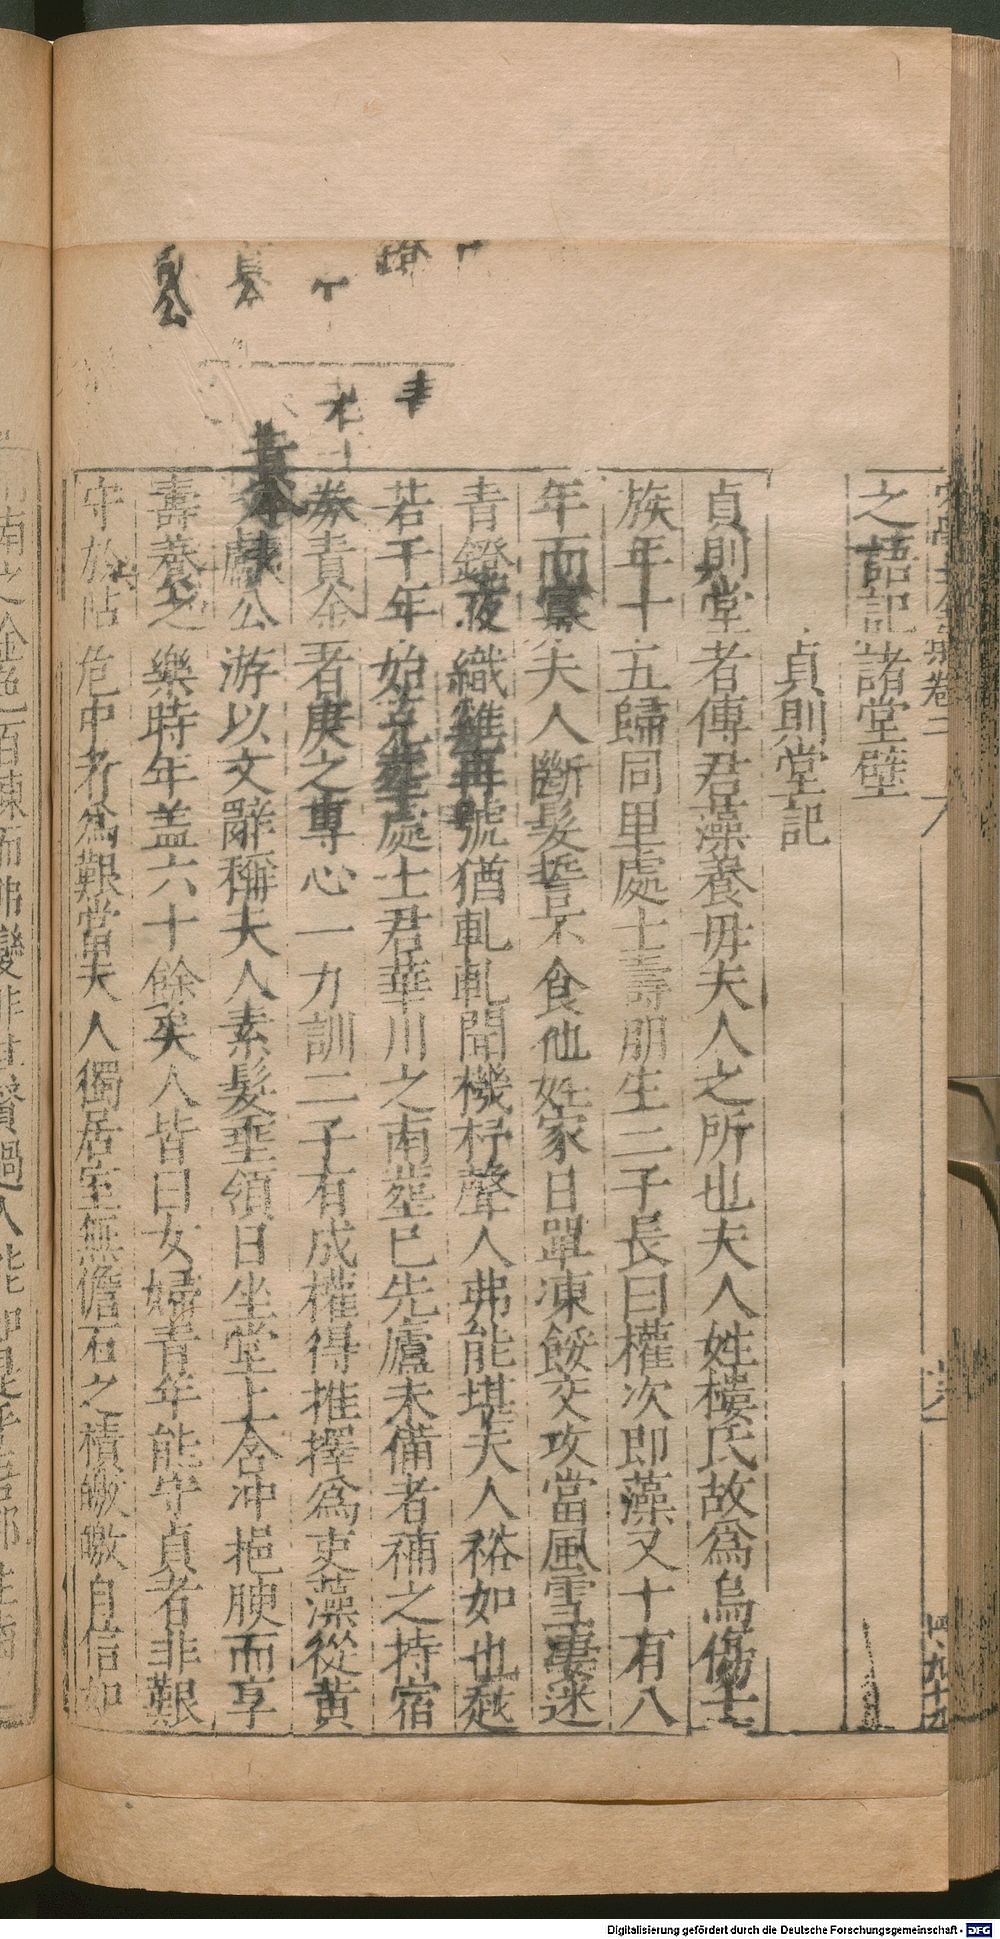 之語記諸堂壁
貞則堂記
貞則堂者傅君藻養毋夫人之所也夫人姓樓氏故為烏傷士
族年十五歸同里處士壽朋生二子長曰權次即藻又十有八
年而寡夫人斷髮誓不食他姓家日單凍餒交攻當風雪凄迷
青鐙夜織雞再號猶軋軋聞機杼聲人弗能堪夫人裕如也越
若干年始克塟處士君華川之南塟已先廬未備者補之持宿
券責金者庚之專心一力訓二子有成權得推擇為吏藻從黃
文獻公游以文辭稱夫人素髮垂領日坐堂上含冲挹腴而享
壽養之樂時年盖六十餘矣人皆曰女婦青年能守貞者非艱
守於阽危中者為艱當夫人獨居室無儋石之積皦皦自信如
四九十五
Digitalisierung gefördert durch die Deutsche Forschungsgemeinschaft - DFG